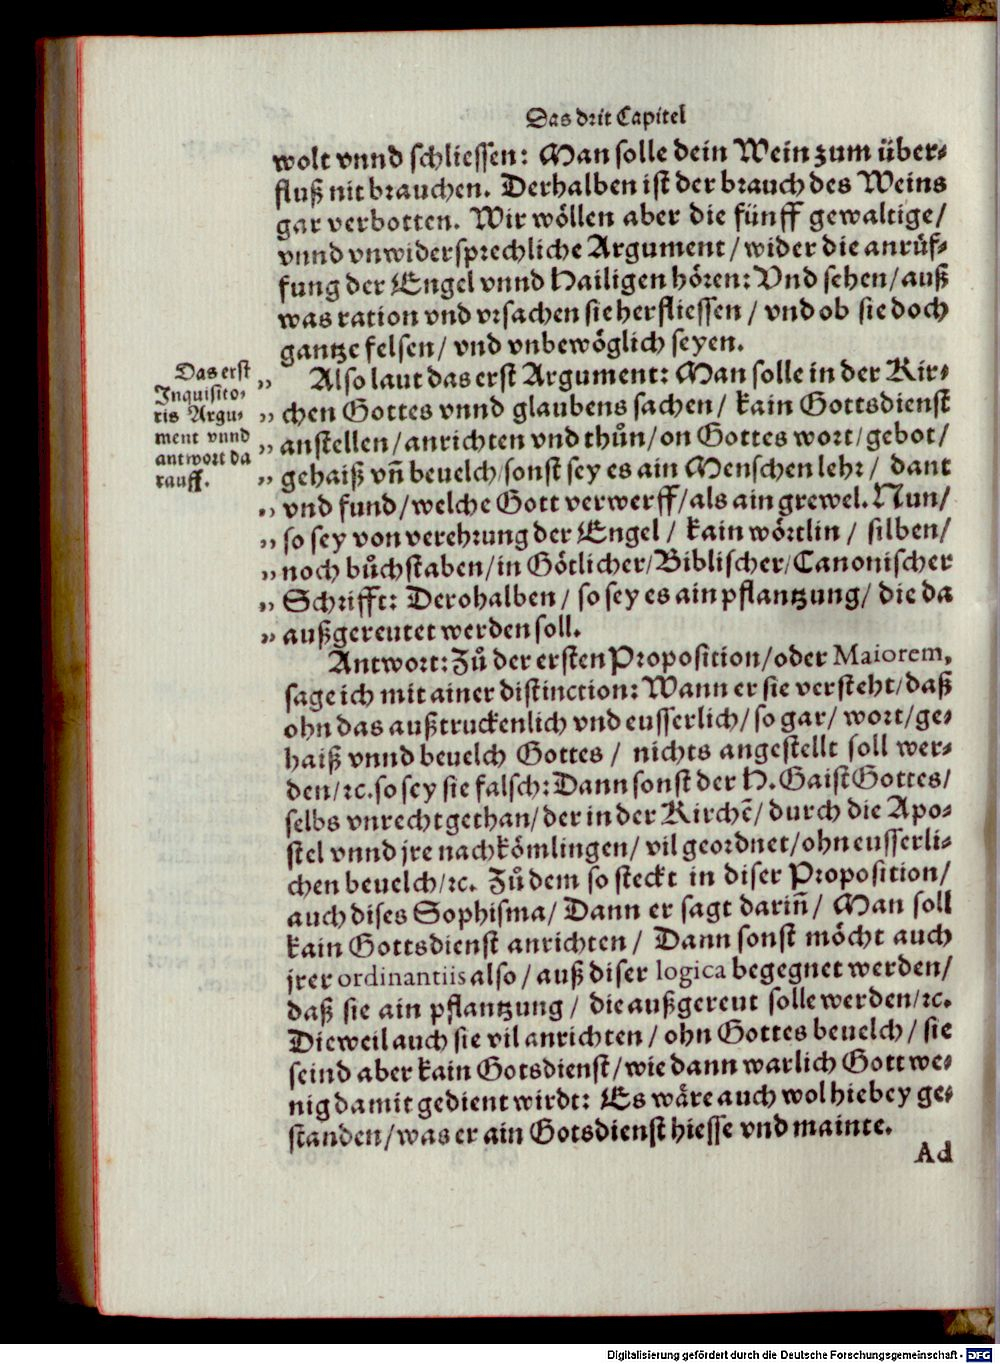 Das drit Capitel
wolt vnnd schliessen: Man solle dein Wein zum über⸗
fluß nit brauchen. Derhalben ist der brauch des Weins
gar verbotten. Wir wöllen aber die fünff gewaltige/
vnnd vnwidersprechliche Argument/ wider die anrüf⸗
fung der Engel vnnd Hailigen hören: Vnd sehen/ auß
was ration vnd vrsachen sie herfliessen/ vnd ob sie doch
gantze felsen/ vnd vnbewöglich seyen.
Das erst
Inquisito⸗
ris Argu⸗
ment vnnd
antwort da
rauff.
„ Also laut das erst Argument: Man solle in der Kir⸗
„ chen Gottes vnnd glaubens sachen/ kain Gottsdienst
„ anstellen/ anrichten vnd thůn/ on Gottes wort/ gebot/
„ gehaiß vñ beuelch/ sonst sey es ain Menschen lehr/ dant
„ vnd fund/ welche Gott verwerff/ als ain grewel. Nun/
„ so sey von verehrung der Engel/ kain wörtlin/ silben/
„ noch bůchstaben/ in Götlicher/ Biblischer/ Canonischer
„ Schrifft: Derohalben/ so sey es ain pflantzung/ die da
„ außgereutet werden soll.
Antwort: Zů der ersten Proposition/ oder Maiorem,
sage ich mit ainer distinction: Wann er sie versteht/ daß
ohn das außtruckenlich vnd eusserlich/ so gar/ wort/ ge⸗
haiß vnnd beuelch Gottes/ nichts angestellt soll wer⸗
den/ ꝛc. so sey sie falsch: Dann sonst der H. Gaist Gottes/
selbs vnrecht gethan/ der in der Kirchẽ/ durch die Apo⸗
stel vnnd jre nachkömlingen/ vil geordnet/ ohn eusserli⸗
chen beuelch/ ꝛc. Zů dem so steckt in diser Proposition/
auch dises Sophisma/ Dann er sagt dariñ/ Man soll
kain Gottsdienst anrichten/ Dann sonst möcht auch
jrer ordinantiis also/ auß diser logica begegnet werden/
daß sie ain pflantzung/ die außgereut solle werden/ ꝛc.
Dieweil auch sie vil anrichten/ ohn Gottes beuelch/ sie
seind aber kain Gotsdienst/ wie dann warlich Gott we⸗
nig damit gedient wirdt: Es wäre auch wol hiebey ge⸗
standen/ was er ain Gotsdienst hiesse vnd mainte.
Ad
Digitalisierung gefördert durch die Deutsche Forschungsgemeinschaft - DFG